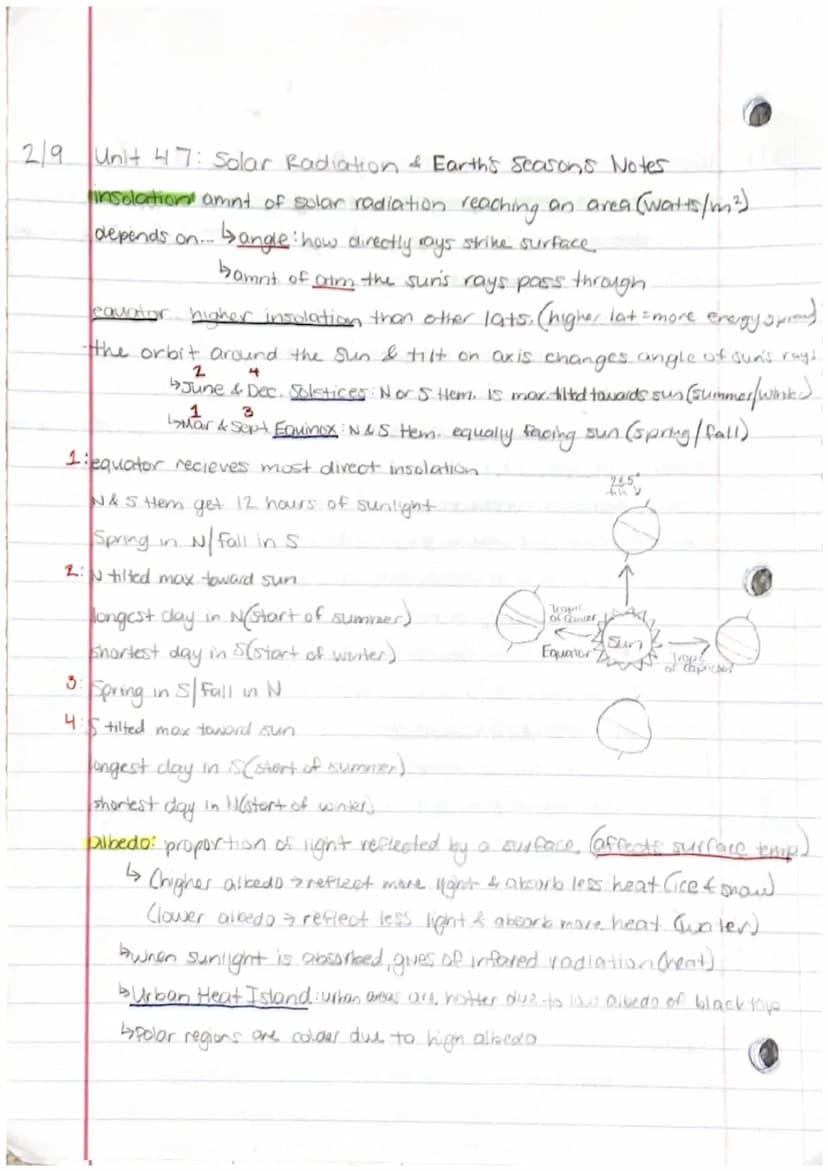 2/9 Unit 47: Solar Radiation & Earth's Seasons Notes
insolation amnt of solar radiation reaching an area (watts/m²)
depends on... ↳ angle: how directly rays strike surface
↳ amnt of atm the sun's rays pass through
equator higher insolation than other lats. (higher lat = more energy spread)
the orbit around the sun & tilt on axis changes angle of sun's rays
2 4
↳ June & Dec. Solstices: N or S Hem. is max tilted towards sun (summer/winter)
1 3
↳ Mar & Sept. Equinox: N & S Hem. equally facing sun (spring/fall)
1: equator recieves most direct insolation
23.5°
tilt
N & S Hem get 12 hours of sunlight
Spring in N/fall in S
2: N tilted max toward sun
longest day in N (start of summer)
Tropic of Cancer
Sun
Equator
Tropic of Capricorn
shortest day in S (start of winter)
3: Spring in S/Fall in N
4: S tilted max toward sun
longest day in S (start of summer)
shortest day in N (start of winter)
albedo: proportion of light reflected by a surface (affects surface temp)
↳ (higher albedo → reflect more light & absorb less heat (ice & snow)
(lower albedo → reflect less light & absorb more heat (water)
↳ when sunlight is absorbed, gives of infared radiation (heat)
↳ Urban Heat Island: urban areas are hotter due to low albedo of black tops
↳ Polar regions are colder due to high albedo